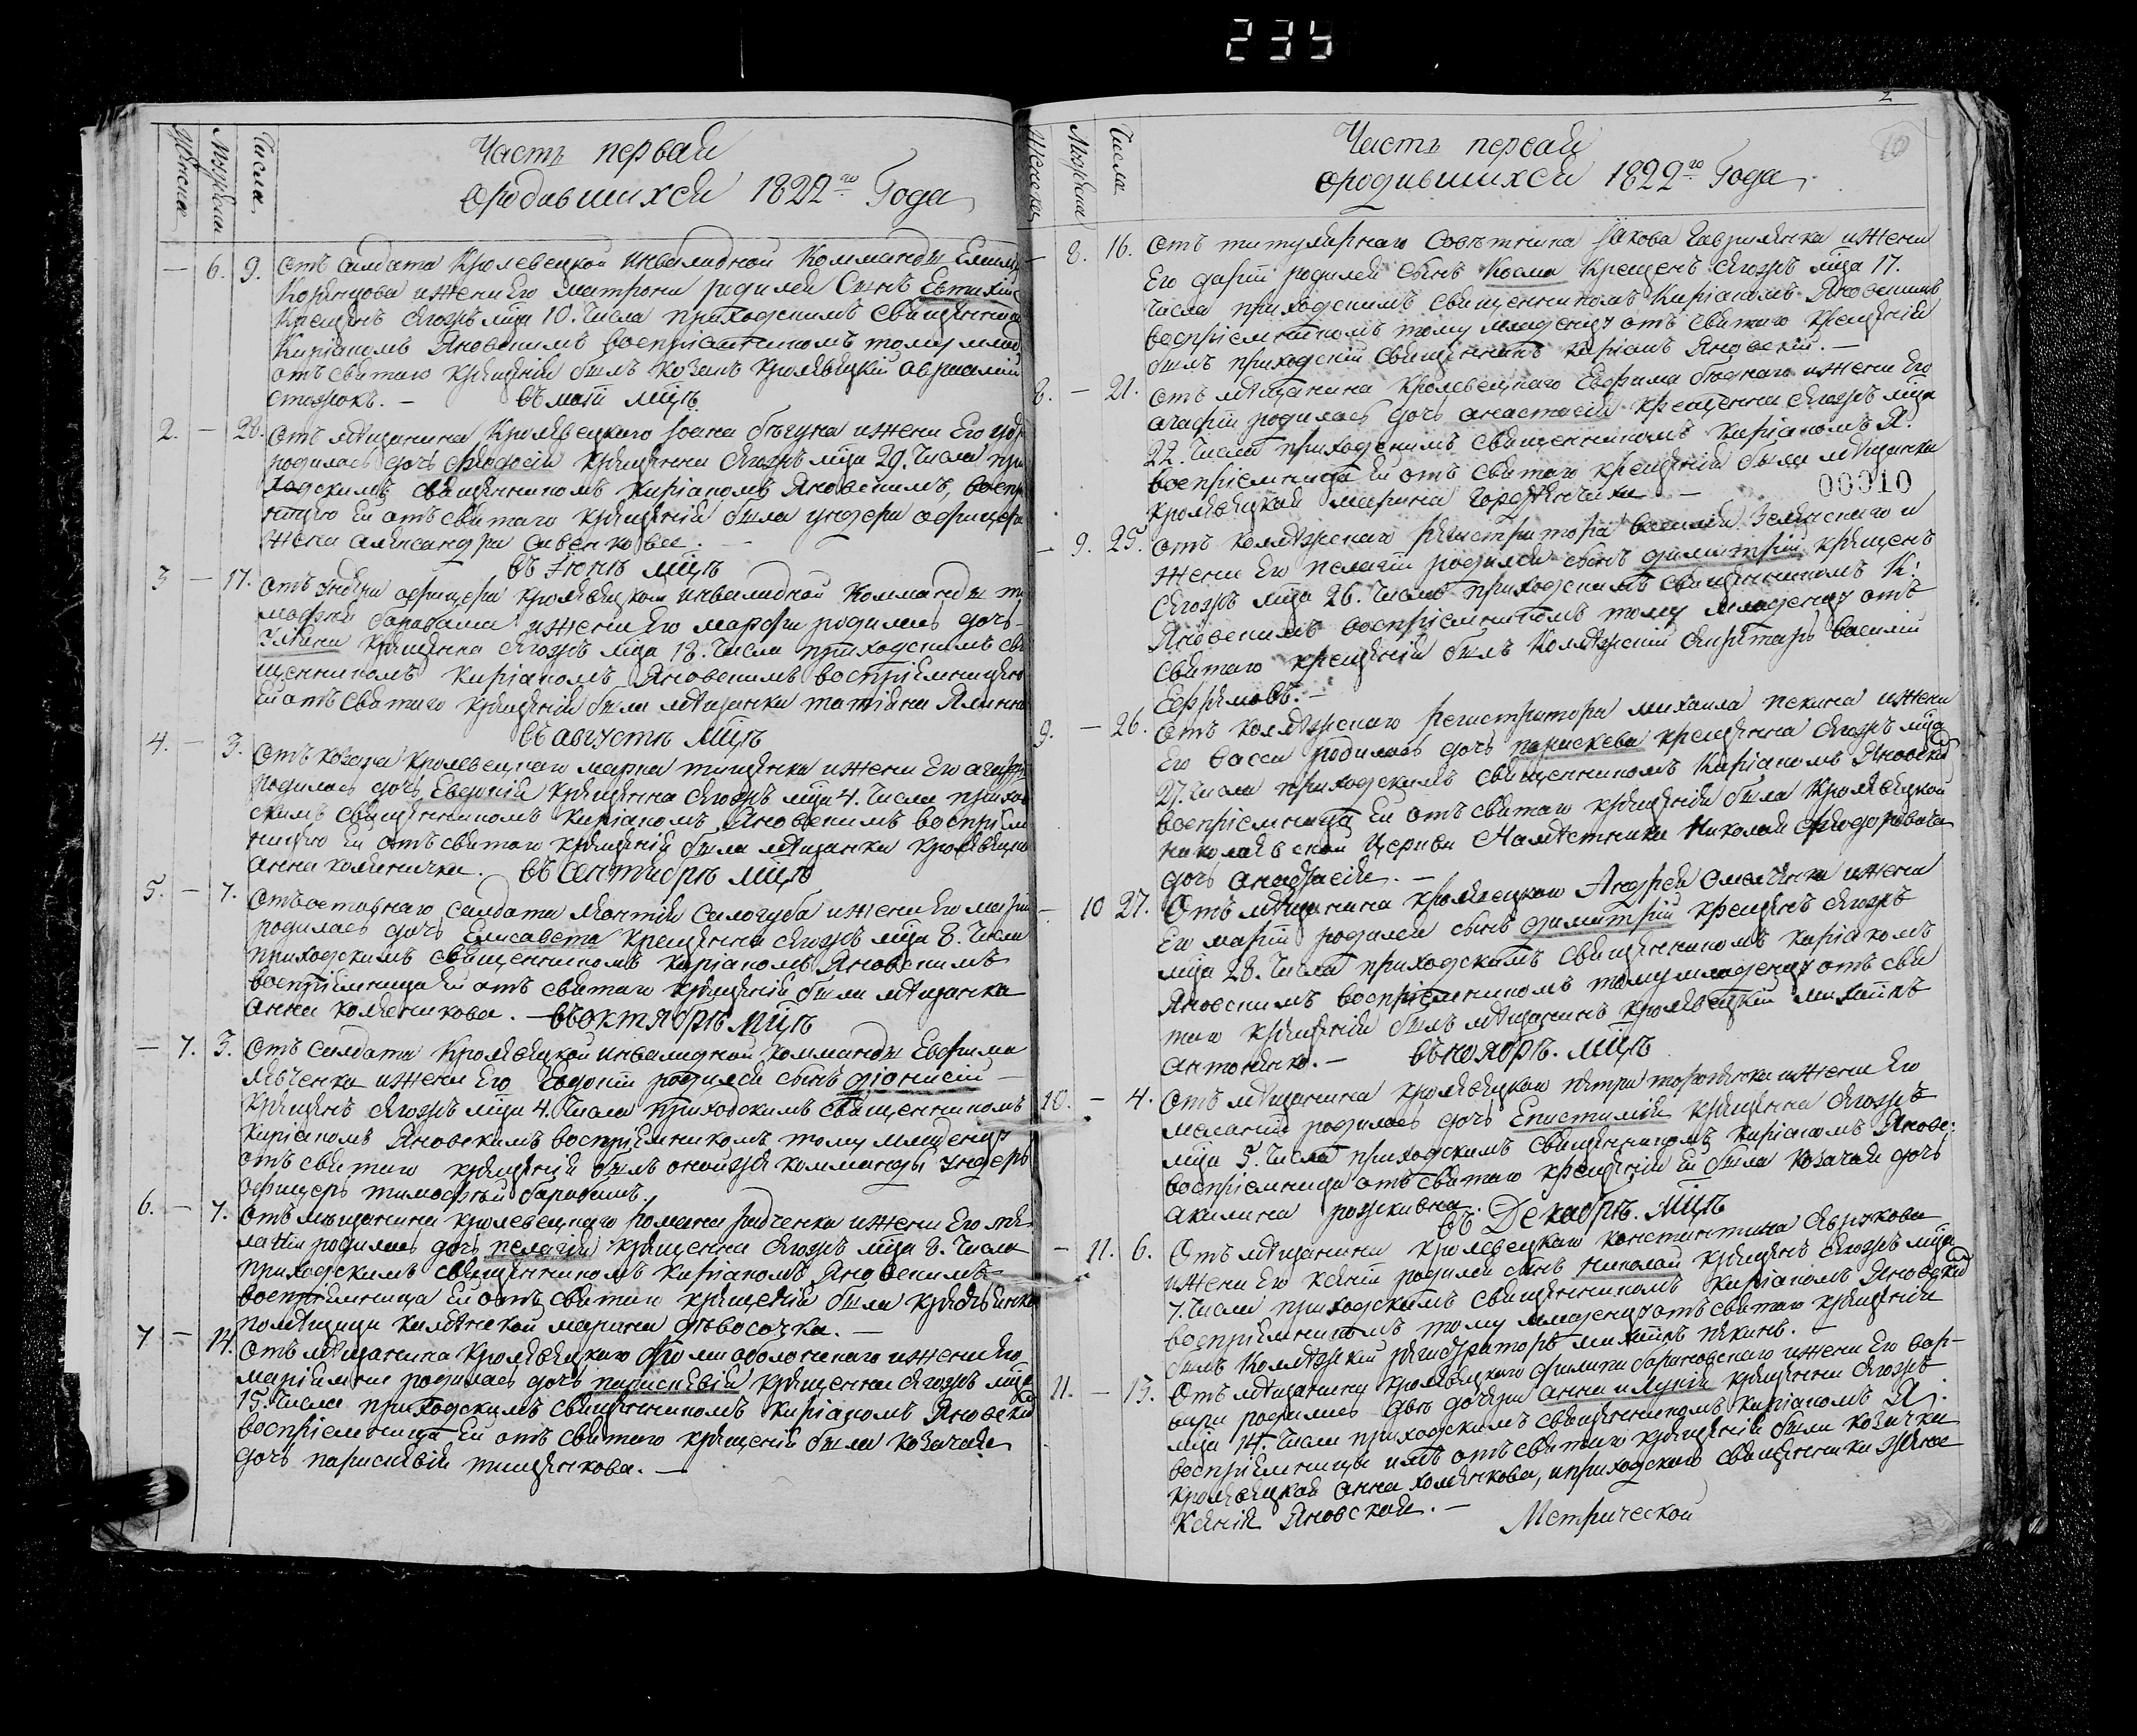 235
женска
Мужеска
Числа
Часть первая
ородившихся 1822го Года
— 6. 9. Отъ салдата Кролевецкой инвалидной Командъı
ижени Его матронı родился Сынъ Евтихии
Крещенъ тогожъ мца 10. Числа приходскимъ священни
Киріакомъ Яновскимъ воспріемникомъ тому млад
отъ святаго крещенія былъ козакъ кролевецкій
въ маіи мцѣ
2. — 28. Отъ мѣщанина Кролевецкого Іоана бѣгуна ижени Его
родилась дочь феодосія крещенна тогожъ мца 29. Числа при
ходскимъ священникомъ Киріакомъ Яновскимъ, воспр
ницею ей отъ святаго крещенія была ундеръ офицера
жена александра савенковая.
въ Іюнѣ мцѣ
3 — 17. Отъ ундеръ офицера кролевецкой инвалидной Командъı ти
мофея барабаша ижени Его марфы родилась дочь
крещенна тогожъ мца 18. Числа приходскимъ свя
щенникомъ Киріакомъ Яновскимъ воспріемницею
ей отъ святаго крещенія была мѣщанка татіана
въ августѣ мцѣ
4. — 3. Отъ козака Кролевецкаго марка тищенка ижени Его
родилась дочь Евдокія крещенна тогожъ мца 4. Числа приход
скимъ священникомъ Киріакомъ Яновскимъ воспріем
ницею ей отъ святаго крещенія была мѣщанка кролевецка
анна
въ Сентябрѣ мцѣ
5. — 7. Отъ отставнаго салдата леонтія Салогуба ижени Его маріи
родилась дочь Елисавета крещенна тогожъ мца 8. Числа
приходскимъ священникомъ Киріакомъ Яновскимъ
воспріемница ей отъ святаго крещенія была мѣщанка
анна
въ октябрѣ мцѣ
— 7. 3. Отъ Салдата Кролевецкой инвалидной Командъı Евфима
ижени Его Евдокіи родился сынъ діонисій
крещенъ тогожъ мца 4. Числа приходскимъ священникомъ
Киріакомъ Яновскимъ воспріемникомъ тому младенцу
отъ святаго крещенія былъ оной же командъı ундеръ
офицеръ тимофѣй барабашъ.
6. — 7. Отъ мѣщанина кролевецкаго романа радченка ижени Его ме
ланіи родилась дочь пелагія крещенна тогожъ мца 8. Числа
приходскимъ священникомъ Киріакомъ Яновскимъ
воспріемница ей отъ святаго крещенія была
помѣщици марина
7 — 14. Отъ мѣщанина Кролевецкаго фоми оболонскаго ижени Его
маріямни родилась дочь параскевія крещенна тогожъ мца
15. Числа приходскимъ священникомъ Киріакомъ Яновским
воспріемница ей отъ святаго крещенія была козачая
дочь параскевія тищенкова. —
2
10
Женска
Мужеска
Числа
Часть первая
ородившихся 1822го Года
— 8. 16. Отъ титулярнаго Совѣтника Іакова Гавриленка ижени
Его даріи родился сынъ Косма Крещенъ тогожъ мца 17.
Числа приходскимъ священникомъ Киріакомъ Яновскимъ
воспріемникомъ тому младенцу отъ святаго крещенія
былъ приходскій священникъ Киріакъ Яновскій. —
8. — 21. Отъ мѣщанина Кролевецкаго Евфима бѣднаго ижени Его
агафіи родилась дочь анастасія крещенна тогожъ мца
22. Числа приходскимъ священникомъ Киріакомъ Я:
воспріемница ей отъ святаго крещенія была мѣщанка
кролевецкая марина
00010
— 9. 25. Отъ коллѣжскаго регистратора василия Зеленскаго и
жени Его пелагіи родился сынъ димитрій крещенъ
тогожъ мца 26. Числа приходскимъ священникомъ К:
Яновскимъ воспріемникомъ тому младенцу отъ
святаго крещенія былъ Коллѣжскій секретарь василій
Ефримовъ. —
9. — 26. Отъ коллѣжскаго регистратора михаила пекина ижени
Его васси родилась дочь параскева крещенна тогожъ мца
27. Числа приходскимъ священникомъ Киріакомъ Яновским
воспріемница ей отъ святаго крещенія была Кролевецкой
николаевской Церкви Намѣстника Николая феодоровича
дочь анастасія. —
— 10 27. Отъ мѣщанина кролевецкого Андрея Омелченка ижени
Его маріи родился сынъ димитрій крещенъ тогожъ
мца 28. Числа приходскимъ священникомъ Киріакомъ
Яновскимъ воспріемникомъ тому младенцу отъ свя
таго крещенія былъ мѣщанинъ кролевецкій михаилъ
антоненко. — въ ноябрѣ. мцѣ
10. — 4. Отъ мѣщанина кролевецкаго петра ижени Его
меланіи родилась дочь Епистимія крещенна тогожъ
мца 5. Числа приходскимъ священникомъ Киріакомъ Яновс:
воспріемница отъ святаго крещенія ей была козачая дочь
акилина
въ Декабрѣ. мцѣ
— 11. 6. Отъ мѣщанина кролевецкаго константина
ижени Его ксеніи родился сынъ николай крещенъ тогожъ мца
7. Числа приходскимъ священникомъ Киріакомъ Яновским
воспріемникомъ тому младенцу отъ святаго крещенія
былъ Коллѣжскій регистраторъ михаилъ пекинъ. —
11. — 13. Отъ мѣщанина кролевецкаго филипа барановскаго ижени Его вар-
вари родились двѣ дочери анна и лукія крещенни тогожъ
мца 14. Числа приходскимъ священникомъ Киріакомъ Я:
воспріемници имъ отъ святаго крещенія были козачка
кролевецкая анна хоменкова, и приходскаго священника жена
Ксенія Яновская. —
Метрической